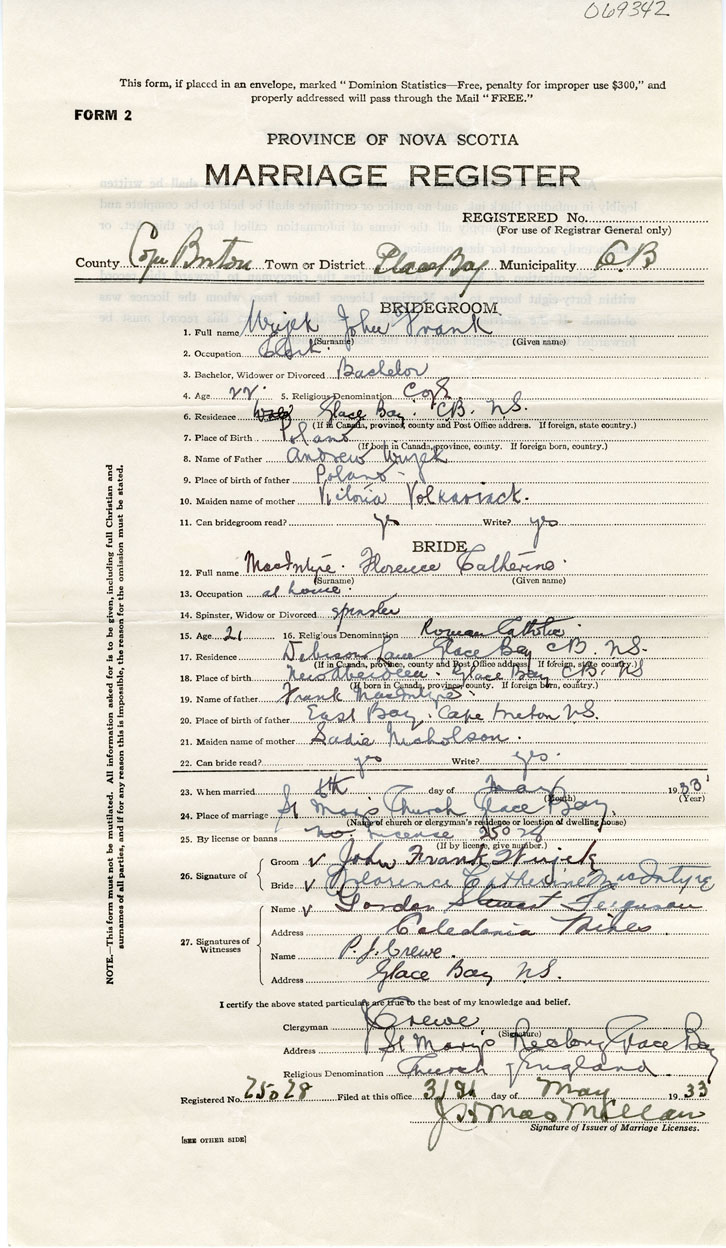 069342
This form, if placed in an envelope, marked "Dominion Statistics—Free, penalty for improper use $300," and
properly addressed will pass through the Mail "FREE."
FORM 2
PROVINCE OF NOVA SCOTIA
MARRIAGE REGISTER
REGISTERED No.
(For use of Registrar General only)
County Cape Breton Town or District Glace Bay Municipality C B
BRIDEGROOM
1. Full name Wujek John Frank
(Surname) (Given name)
2. Occupation Clerk.
3. Bachelor, Widower or Divorced Bachelor
4. Age 22. 5. Religious Denomination C of E
6. Residence Glace Bay. C.B. N.S.
(If in Canada, province, county and Post Office address. If foreign, state country.)
7. Place of Birth Poland
(If born in Canada, province, county. If foreign born, country.)
8. Name of Father Andrew Wujek
9. Place of birth of father Poland
10. Maiden name of mother Victoria
11. Can bridegroom read? yes Write? yes
BRIDE
12. Full name MacIntyre. Florence Catherine.
(Surname) (Given name)
13. Occupation at home.
14. Spinster, Widow or Divorced spinster
15. Age 21 16. Religious Denomination Roman Catholic.
17. Residence Lane Glace Bay CB. NS.
(If in Canada, province, county and Post Office address. If foreign, state country.)
18. Place of birth New Aberdeen. Glace Bay CB. NS
(If born in Canada, province, county. If foreign born, country.)
19. Name of father Frank MacIntyre.
20. Place of birth of father East Bay. Cape Breton N.S.
21. Maiden name of mother Sadie Nicholson.
22. Can bride read? yes Write? yes.
23. When married 6th day of May 1933
(Month) (Year)
24. Place of marriage St Mary's Church Glace Bay
(Name of church or clergyman's residence or location of dwelling house)
25. By license or banns no. License 25028
(If by license, give number.)
26. Signature of
Groom v John Frank Wujek
Bride v Florence Catherine MacIntyre
27. Signatures of Witnesses
Name v Gordon Stewart Ferguson
Address Caledonia Mines
Name P. J. Crewe.
Address Glace Bay N.S.
I certify the above stated particulars are true to the best of my knowledge and belief.
Clergyman Crewe
(Signature)
Address St Mary's Rectory Glace Bay
Religious Denomination Church of England
Registered No. 25028 Filed at this office 31st day of May 1933
MacMillan
Signature of Issuer of Marriage Licenses.
[SEE OTHER SIDE]
NOTE.—This form must not be mutilated. All information asked for is to be given, including full Christian and
surnames of all parties, and if for any reason this is impossible, the reason for the omission must be stated.